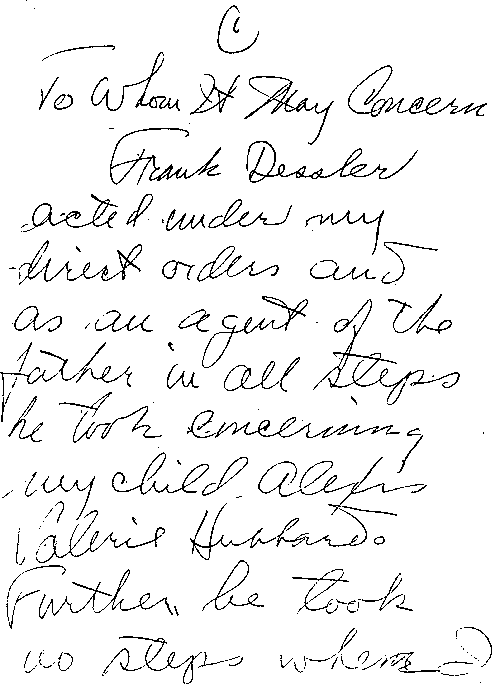 C
To Whom It May Concern
Frank Dessler
acted under my
direct orders and
as an agent of the
father in all steps
he took concerning
my child Alexis
Valerie Hubbard.
Further, he took
no steps where I